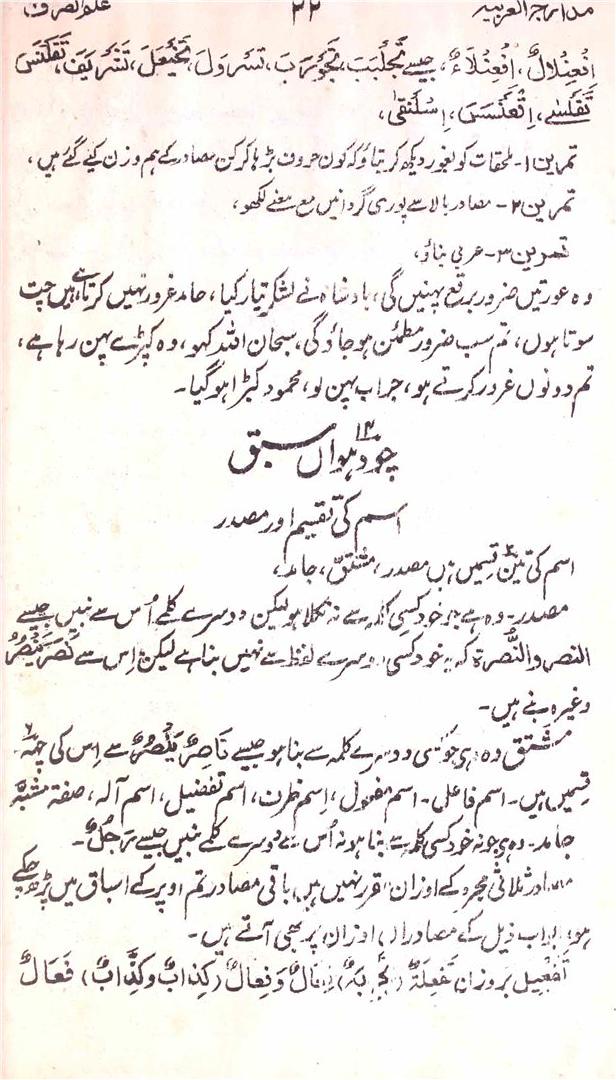 علم الصرف ۲۲ مدارج العربیہ
اِفْعِنْلَالٌ، اِفْعِنْلَاءٌ، جیسے تَجَلْبَبَ، تَجَوْرَبَ، تَسَرْوَلَ، تَخَيْعَلَ، تَشَرْيَفَ، تَقَلْنَسَ
تَقَلْسٰے، اِقْعَنْسَسَ، اِسْلَنْقٰی،
تمرین ۱- ملحقات کو بغور دیکھ کر بتاؤ کہ کون حروف بڑہا کر کن مصادر کے ہم وزن کیئے گئے ہیں،
تمرین ۲- مصادر بالا سے پوری گردانیں مع معنے لکھو،
تمرین ۳- عربی بناؤ،
وہ عورتیں ضرور برقع پہنیں گی، بادشاہ نے لشکر تیار کیا، حامد غرور نہیں کرتا ہے، میں چت
سوتا ہوں، تم سب ضرور مطمئن ہو جاؤ گی، سبحان اللہ کہو، وہ کپڑے پہن رہا ہے،
تم دونوں غرور کرتے ہو، جراب پہن لو، محمود کبڑا ہو گیا۔
چودہواں ۱۴ سبق
اسم کی تقسیم اور مصدر
اسم کی تین ۳ قسمیں ہیں مصدر، مشتق، جامد،
مصدر۔ وہ ہے جو خود کسی کلمہ سے نہ نکلا ہو لیکن دوسرے کلمے اُس سے بنیں جیسے
النصر والنُّصرة کہ یہ خود کسی دوسرے لفظ سے نہیں بنا ہے لیکن اِس سے نَصَرَ يَنْصُرُ
وغیرہ بنے ہیں۔
مشتق وہ ہے جو کسی دوسرے کلمہ سے بنا ہو جیسے نَاصِرٌ يَنْصُرُ سے اِس کی چھہ ۶
قسمیں ہیں۔ اسم فاعل۔ اسم مفعول، اِسم ظرف، اسم تفضیل، اسم آلہ، صفة مشبہ
جامد۔ وہ ہے جو نہ خود کسی کلمہ سے بنا ہو نہ اُس سے دوسرے کلمے بنیں جیسے رَجُلٌ۔
مصادر ثلاثی مجرد کے اوزان مقرر نہیں ہیں باقی مصادر تم اوپر کے اسباق میں پڑھ چکے
ہو، ابواب ذیل کے مصادر ان اوزان پر بھی آتے ہیں۔
تَفْعِيل بروزان تَفْعِلَةٌ (تَجْرِبَةٌ) فِعَالٌ وَفِعَّالٌ (كِذَابٌ وكِذَّابٌ) فَعَالٌ